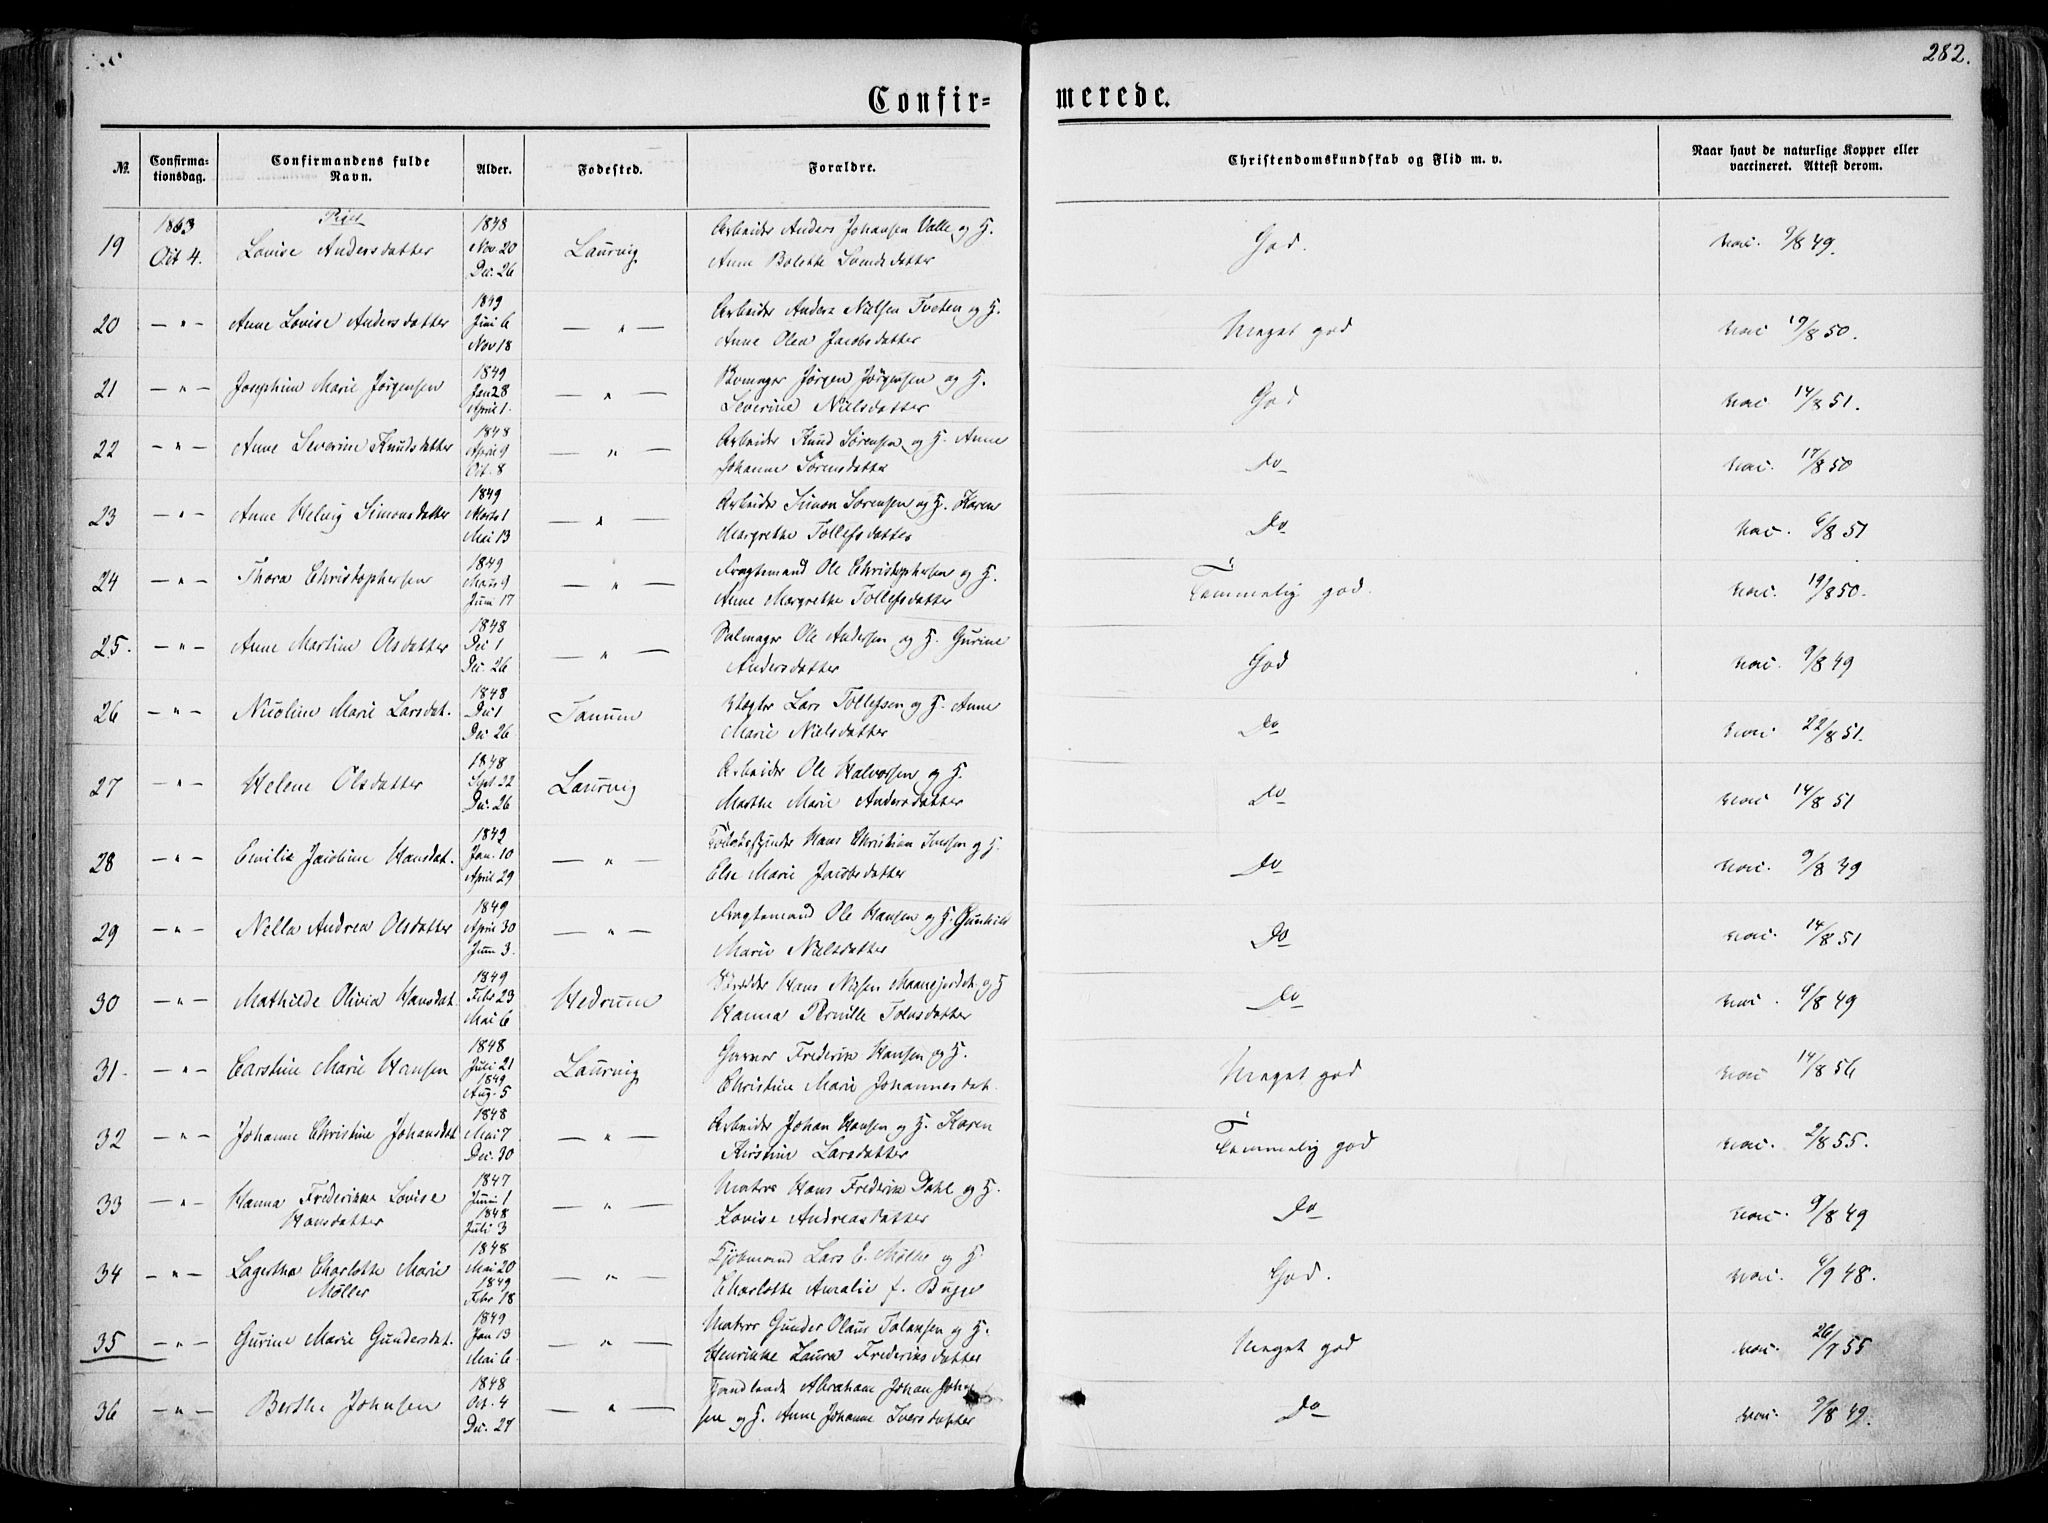 282.
Confir=
merede.
No. Confirma-tionsdag. Confirmandens fulde Navn. Alder. Fødested. Forældre. Christendomskundskab og Flid m. v. Naar havt de naturlige Kopper eller vaccineret. Attest derom.
1863 Piger 1848 Arbeider Anders Johansen Valle og H.
19 Oct 4. Lovise Andersdatter Nov 20 Laurvig God. vac. 9/8 49.
Dec. 26 Anne Bolette
1849 Arbeider Anders Nielsen Tveten og H.
20 — " — Anne Lovise Andersdatter Juni 6 — " — Meget god vac 19/8 50.
Nov 18 Anne Olea Jacobsdatter
1849 Jørgen Jørgensen og H.
21 — " — Josephine Marie Jørgensen Jan 28 — " — God vac 14/8 51.
April 1. Severine Nielsdatter
1848 Arbeider Knud Sørensen og H. Anne
22 — " — Anne Severine Knudsdatter April 9 — " — Do vac. 17/8 50
Oct. 8 Johanne Sørensdatter
1849 Arbeider Simon Sørensen og H. Karen
23 — " — Anne Helvig Simonsdatter Marts 1 — " — Do vac. 6/8 51
Mai 13 Margrethe Tollefsdatter
1849 Fragtemand Ole Christophersen og H.
24 — " — Thora Christophersen Mars 9 — " — Temmelig god. vac. 19/8 50.
Juni 17 Anne Margrethe Tollefsdatter
1848 Salmager Ole Andersen og H. Gurine
25. — " — Anne Martine Olsdatter Dec 1 — " — God vac. 9/8 49
Dec. 26 Andersdatter
1848 Vægter Lars Tollefsen og H. Anne
26 — " — Nicoline Marie Larsdat. Dec 1 Tanum Do vac. 22/8 51.
Dec 26 Marie Nielsdatter
1848 Arbeider Ole Halvorsen og H.
27 — " — Helene Olsdatter Sept 22 Laurvig Do vac 14/8 51
Dec. 26 Marthe Marie Andersdatter
1849 Hans Christian og H.
28 — " — Emilie Jacobine Hansdat. Jan. 10 — " — Do vac. 9/8 49
April 29 Else Marie Jacobsdatter
1849 Fragtemand Ole Hansen og H. Gunhild
29 — " — Nella Andrea Olsdatter April 30 — " — Do vac. 14/8 51
Juni 3. Marie Nielsdatter
1849 Hans og H
30 — " — Mathilde Olivia Hansdat. Febr 23 Hedrum Do vac. 9/8 49
Mai 6 Hanna Pernille
1848 Garver Frederik Hansen og H.
31. — " — Carstine Marie Hansen Juli 21 Laurvig Meget god vac 14/8 56
1849 Aug. 5 Christine Marie Johannesdat.
1848 Arbeider Johan Hansen og H. Karen
32 — " — Johanne Christine Johansdat. Mai 7 — " — Temmelig god vac. 2/8 55.
Dec. 30 Kirstine Larsdatter
1847 Matros Hans Frederik Dahl og H.
33 — " — Hanna Frederikke Lovise Juni 1 — " — Do vac. 9/8 49
Hansdatter 1848 Juli 3 Lovise Andreasdatter
1848 Kjøbmand Lars E. Møller og H.
34 — " — Lagertha Charlotte Marie Mai 20 — " — God. vac. 6/9 48.
Møller 1849 Febr 18 Charlotte Amalie f. Bugge
1849 Matros Gunder Olaus Tolassen og H.
35 — " — Gurine Marie Gundersdat. Jan 13 — " — Meget god vac. 26/7 55
Mai 6 Henrikke Laura Frederiksdatter
1848 Abraham Johan John-
36 — " — Berthe Johnsen Oct. 4 — " — Do vac. 9/8 49.
Dec. 27 sen og H. Anne Johanne Iversdatter